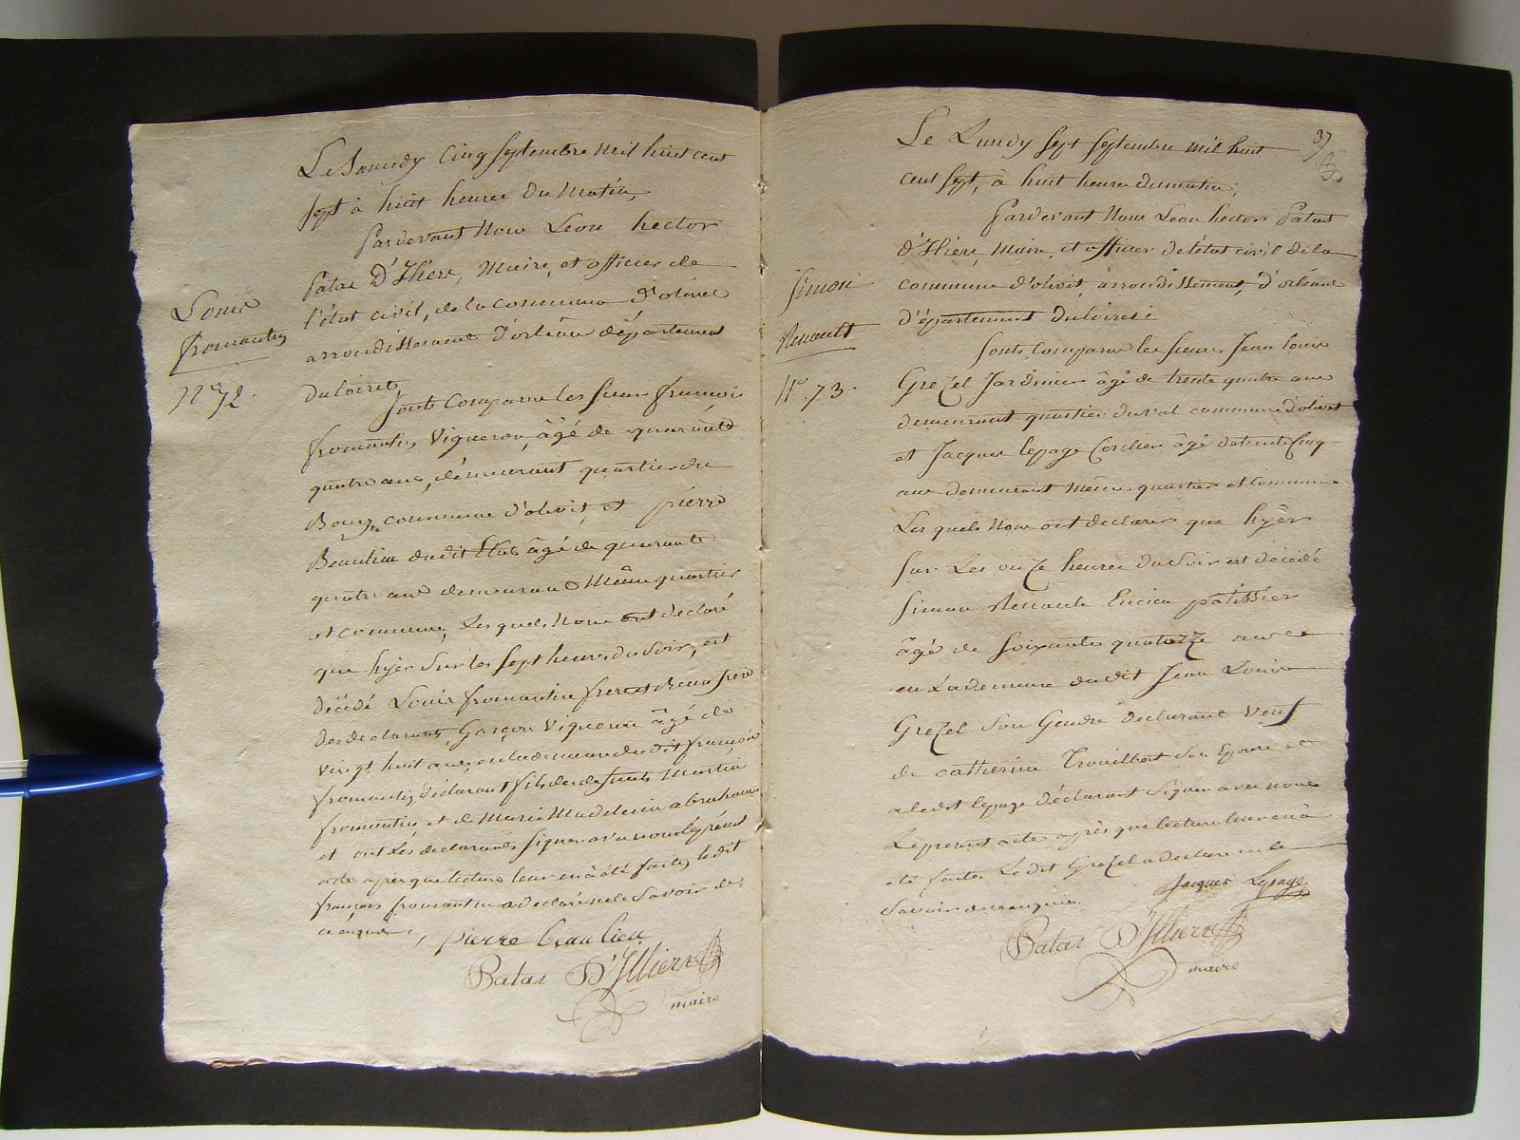 Le Samedy Cinq Septembre mil huit cent
sept à huit heures du matin,
Pardevant Nous Léon hector
Patas D'Illiers, Maire, et officier de
l'état civil, de la commune d'olivet
arrondissement d'orléans département
du loiret,
Louis
fromentin
N° 72.
Sont Comparu les sieurs françois
fromentin Vigneron, âgé de quarante
quatre ans, démeurant quartier du
Bourg commune d'olivet, et pierre
Beaulieu du dit Etat âgé de quarante
quatre ans demeurant Même quartier
et commune, Lesquels Nous ont declaré
que hyèr Sur les sept heures du Soir, est
décédé Louis fromentin frere et Beau frere
des declarants, Garçon Vigneron âgé de
vingt huit ans, en la demeure du dit françois
fromentin déclarant fils de defunts Martin
fromentin et de Marie Madeleine abraham
et ont Les déclarants Signer avec nous le présent
acte après que lecture leur en à été faite, le dit
françois fromentin a declaré ne le Savoir de
ce enquis,
pierre beau lieu
Patas D'Illiers
maire
37
Le Lundy sept Septembre mil huit
cent sept, à huit heures du matin,
Pardevant Nous Leon hector Patas
d'Illiers, Maire, et officier de l'état civil de la
commune d'olivet, arrondissement, d'orléans
d'épartement du loiret
Simon
Renault
N°. 73.
Sont Comparu les sieurs Jean Louis
Grezel Jardinier âgé de trente quatre ans
demeurant quartier du val commune d'olivet
et Jacques lepage Cocher âgé de trente cinq
ans demeurant même quartier et commune
Lesquels Nous ont declarer que hyèr
sur Les onze heures du Soir est décédé
Simon Renault Encien pâtissier
âgé de soixantes quatorze ans
en La demeure du dit Jean Louis
Grezel Son Gendre déclarant veuf
de catherine Trouillbert Son Epouse et
a le dit lepage déclarant Signer avec nous
Le présent acte après que lecture leur en à
été faites Le dit Grezel a declare ne le
Savoir de ce enquis.
Jacques Lepage
Patas D'Illiers
maire